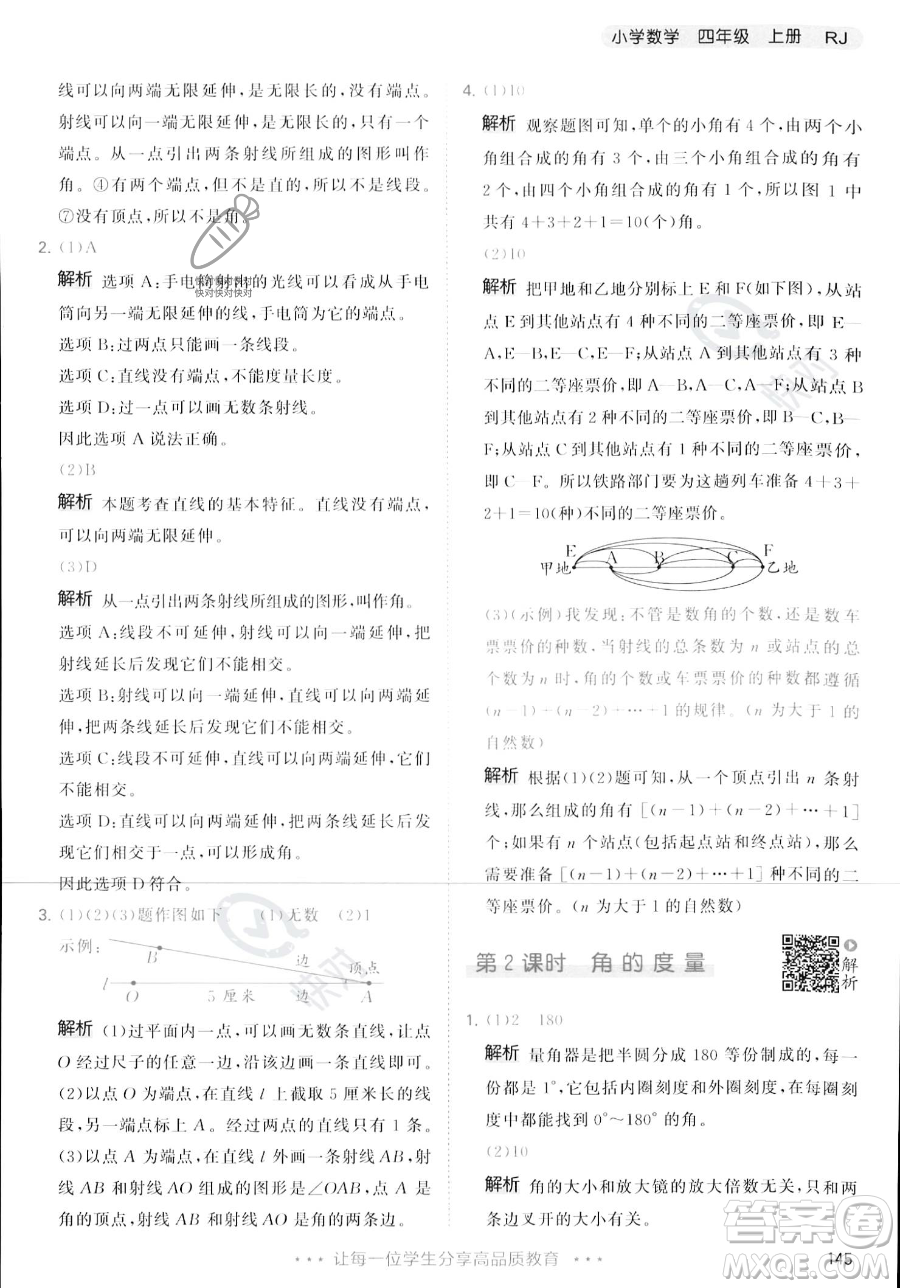 小学数学 四年级 上册 RJ
线可以向两端无限延伸,是无限长的,没有端点。
射线可以向一端无限延伸,是无限长的,只有一个
端点。从一点引出两条射线所组成的图形叫作
角。④有两个端点,但不是直的,所以不是线段。
⑦没有顶点,所以不是角。
2. (1)A
解析 选项 A:手电筒射出的光线可以看成从手电
快对快对快对
快对快对快对
筒向另一端无限延伸的线,手电筒为它的端点。
选项 B:过两点只能画一条线段。
选项 C:直线没有端点,不能度量长度。
选项 D:过一点可以画无数条射线。
因此选项 A 说法正确。
(2)B
解析 本题考查直线的基本特征。直线没有端点,
可以向两端无限延伸。
(3)D
解析 从一点引出两条射线所组成的图形,叫作角。
选项 A:线段不可延伸,射线可以向一端延伸,把
射线延长后发现它们不能相交。
选项 B:射线可以向一端延伸,直线可以向两端延
伸,把两条线延长后发现它们不能相交。
选项 C:线段不可延伸,直线可以向两端延伸,它们
不能相交。
选项 D:直线可以向两端延伸,两条直线延长后发
现它们相交于一点,可以形成角。
因此选项 D 符合。
3. (1)(2)(3)题作图如下 (1)无数 (2)1
示例:
边 顶点
l O 5 厘米 边 A
解析 (1)过平面内一点,可以画无数条直线,让点
O 经过尺子的任意一边,沿着这条边画一条直线。
(2)以点 O 为端点,在直线 l 上截取 5 厘米长的线
段,另一端点标上 A。经过两点的直线只有 1 条。
(3)以点 A 为端点,在直线 l 外画一条射线 AB,射
线 AB 和射线 AO 组成的图形是∠OAB,此时点 A
为顶点,射线 AB 和射线 AO 为角的两条边。
4. (1)10
解析 观察题图可知,单个的小角有 4 个,由两个小
角组合成的角有 3 个,由三个小角组合成的角有
2 个,由四个小角组合成的角有 1 个,所以图 1 中
共有 4+3+2+1=10(个)角。
(2)10
解析 把甲地和乙地分别标上 E 和 F(如下图),从站
点 E 到其他站点有 4 种不同的二等座票价,即 E—
A、E—B、E—C、E—F;从站点 A 到其他站点有 3 种
不同的二等座票价,即 A—B、A—C、A—F;从站点
B 到其他站点有 2 种不同的二等座票价,即 B—C、B—
F;从站点 C 到其他站点有 1 种不同的二等座票价,
即 C—F。所以铁路部门要为这趟列车准备 4+3+
2+1=10(种)不同的二等座票价。
E A B C F
甲地 乙地
(3)(示例)我发现:不管是数角的个数,还是数车
票票价的种数,当射线的总条数为 n 或站点的总
个数为 n 时,角的个数或车票票价的种数都遵循
(n-1)+(n-2)+…+1 的规律。(n 为大于 1 的
自然数)
解析 根据(1)(2)题可知,从一个顶点引出 n 条射
线,那么组成的角有 [(n-1)+(n-2)+…+1]
个;如果有 n 个站点(包括起点站和终点站),那么
需要准备 [(n-1)+(n-2)+…+1] 种不同的二
等座票价。(n 为大于 1 的自然数)
第 2 课时 角的度量
解析
1. (1)2 180
解析 量角器是把半圆分成 180 等份制成的,每一
份都是 1°,它包括内圈刻度和外圈刻度,每圈刻
度中都能找到 0°～180° 的角。
(2)10
解析 角的大小和放大镜的放大倍数无关,只和两
条边叉开的大小有关。
快对
快对
让每一位学生分享高品质教育
145
答案卷
MXQE.COM